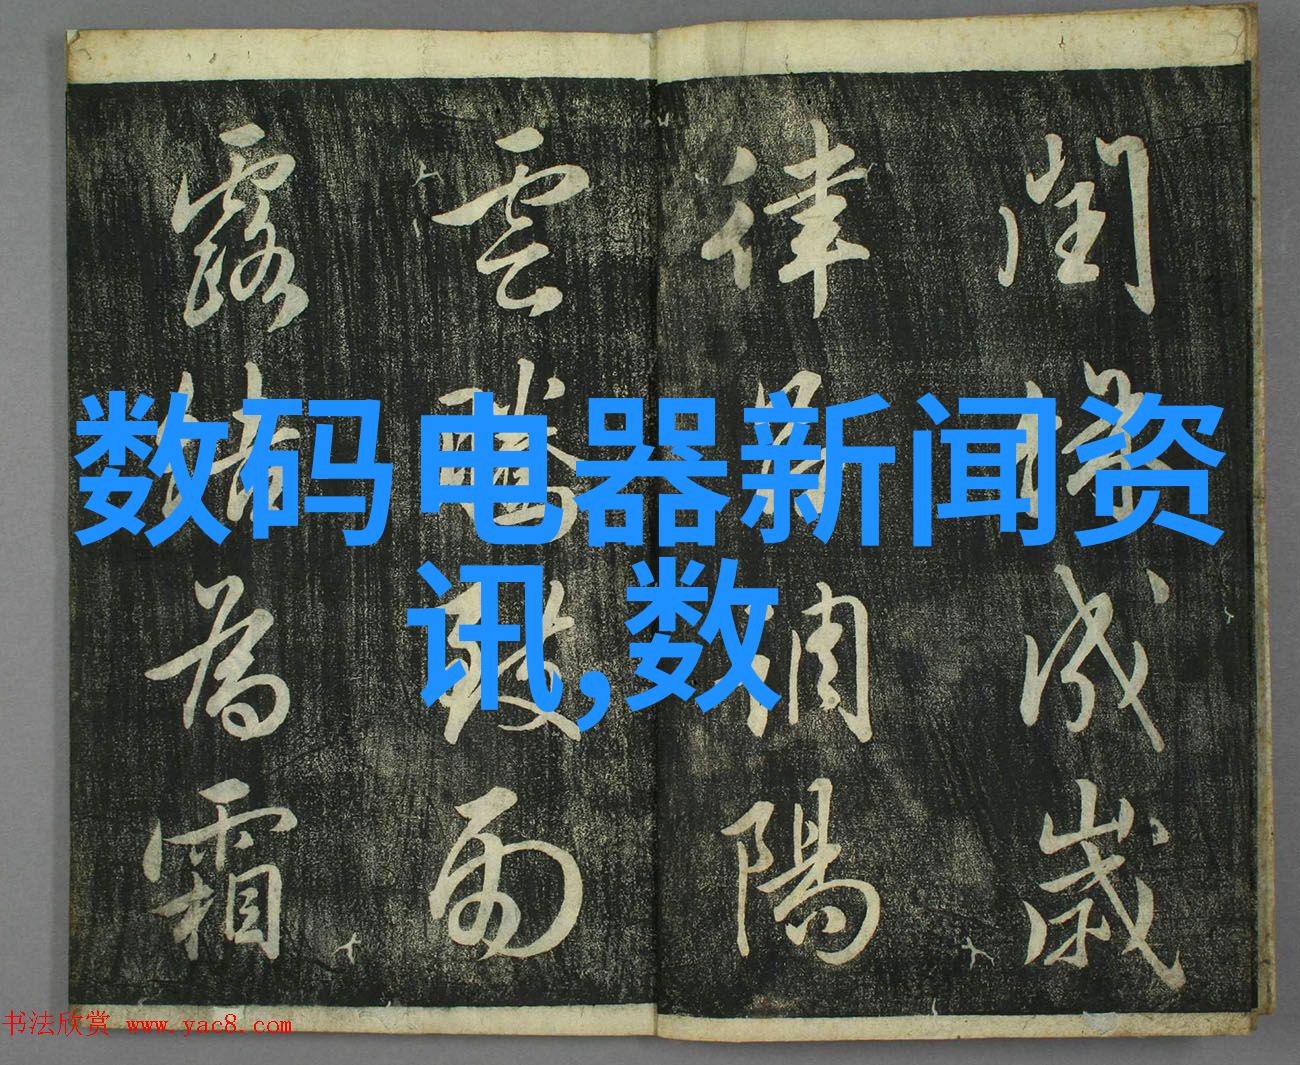 閏餘成歲
律呂調陽
雲騰致雨
露結為霜
数码电器新闻资
讯,数
书法欣赏 www.yac8.com